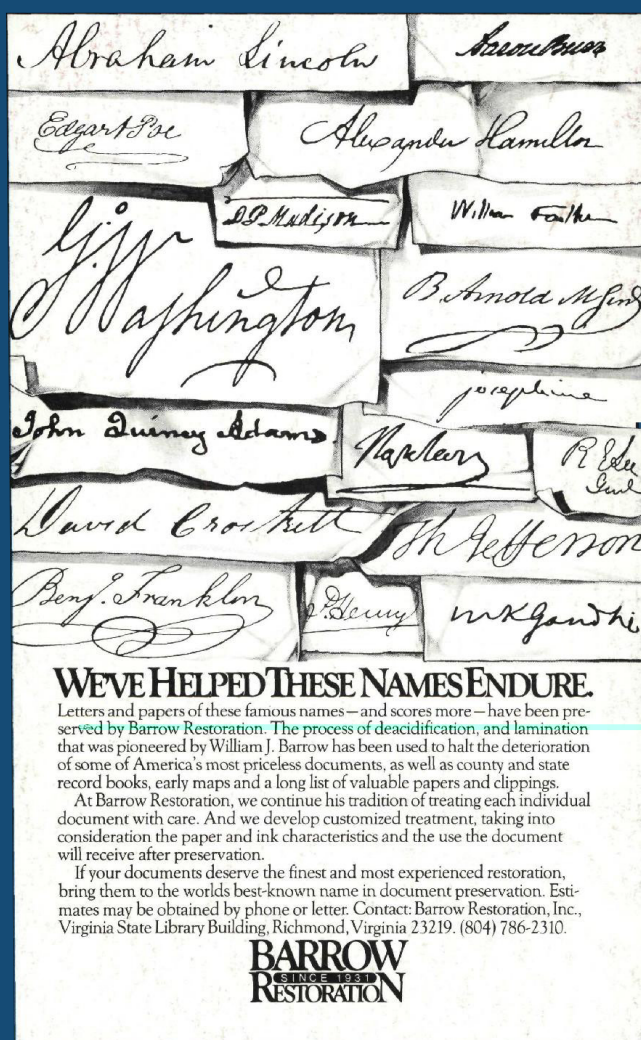 Abraham Lincoln
Aaron Burr
Edgar A Poe
Alexander Hamilton
D P Madison
William Faulkner
G. Washington
B. Arnold
josephine
John Quincy Adams
R E Lee
Genl
David Crockett
Th Jefferson
Benj. Franklin
P. Henry
MK Gandhi
WE'VE HELPED THESE NAMES ENDURE.
Letters and papers of these famous names—and scores more—have been pre-
served by Barrow Restoration. The process of deacidification, and lamination
that was pioneered by William J. Barrow has been used to halt the deterioration
of some of America's most priceless documents, as well as county and state
record books, early maps and a long list of valuable papers and clippings.
At Barrow Restoration, we continue his tradition of treating each individual
document with care. And we develop customized treatment, taking into
consideration the paper and ink characteristics and the use the document
will receive after preservation.
If your documents deserve the finest and most experienced restoration,
bring them to the worlds best-known name in document preservation. Esti-
mates may be obtained by phone or letter. Contact: Barrow Restoration, Inc.,
Virginia State Library Building, Richmond, Virginia 23219. (804) 786-2310.
BARROW
SINCE 1931
RESTORATION